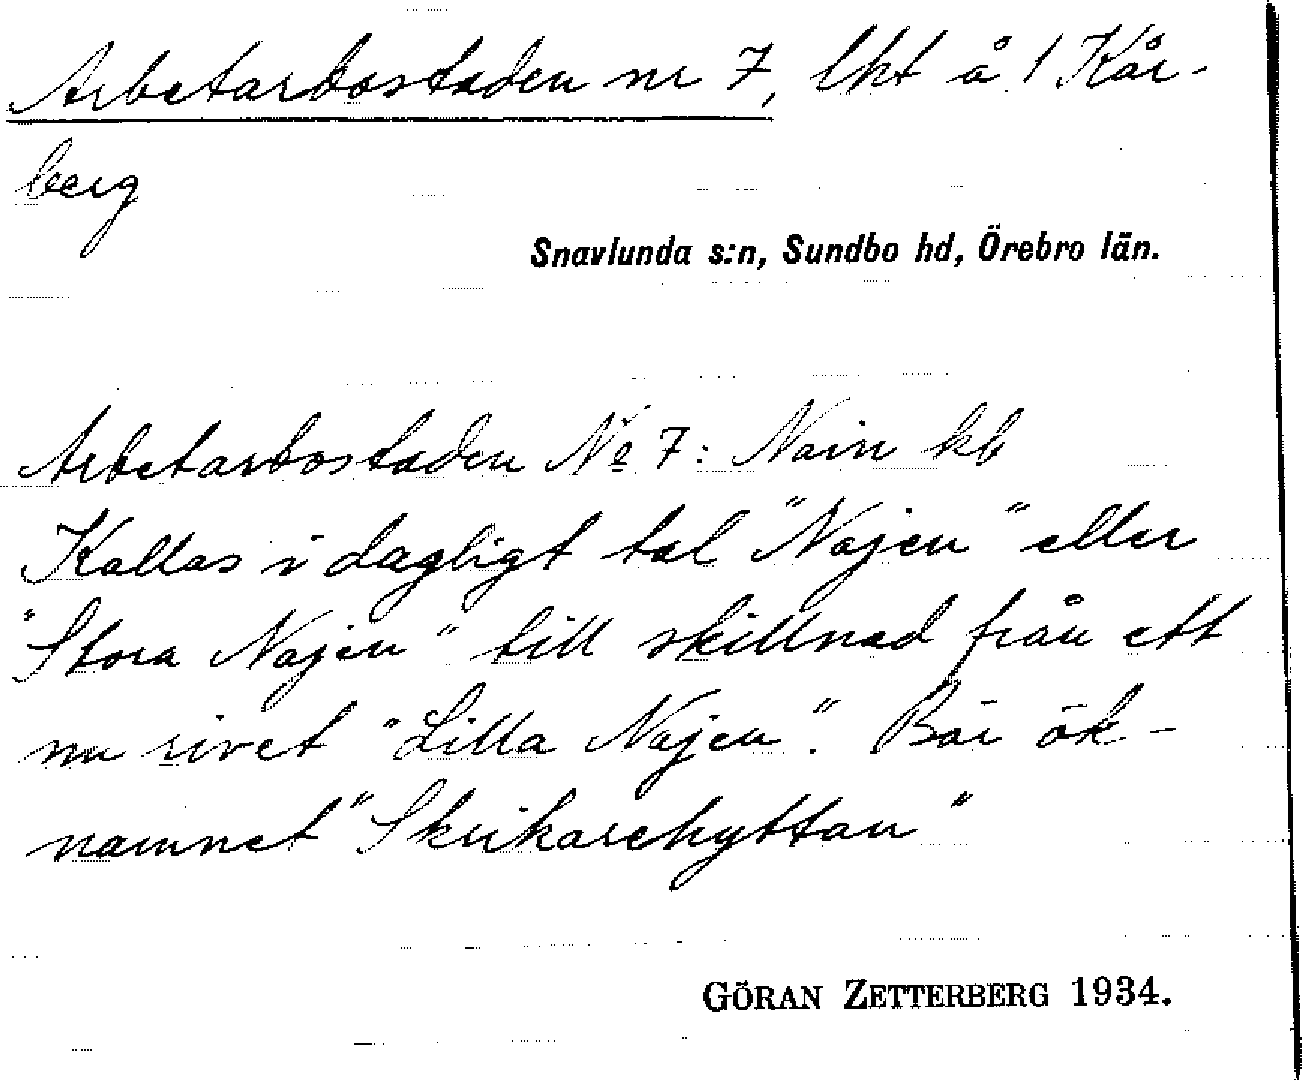 Arbetarbostaden nr 7, lht å 1 Kår-
berg
Snavlunda s:n, Sundbo hd, Örebro län.
Arbetarbostaden No 7: Nain kb
Kallas i dagligt tal "Najen" eller
"Stora Najen" till skillnad från ett
nu rivet "Lilla Najen". Bär ök-
namnet "Skrikarehyttan"
GÖRAN ZETTERBERG 1934.